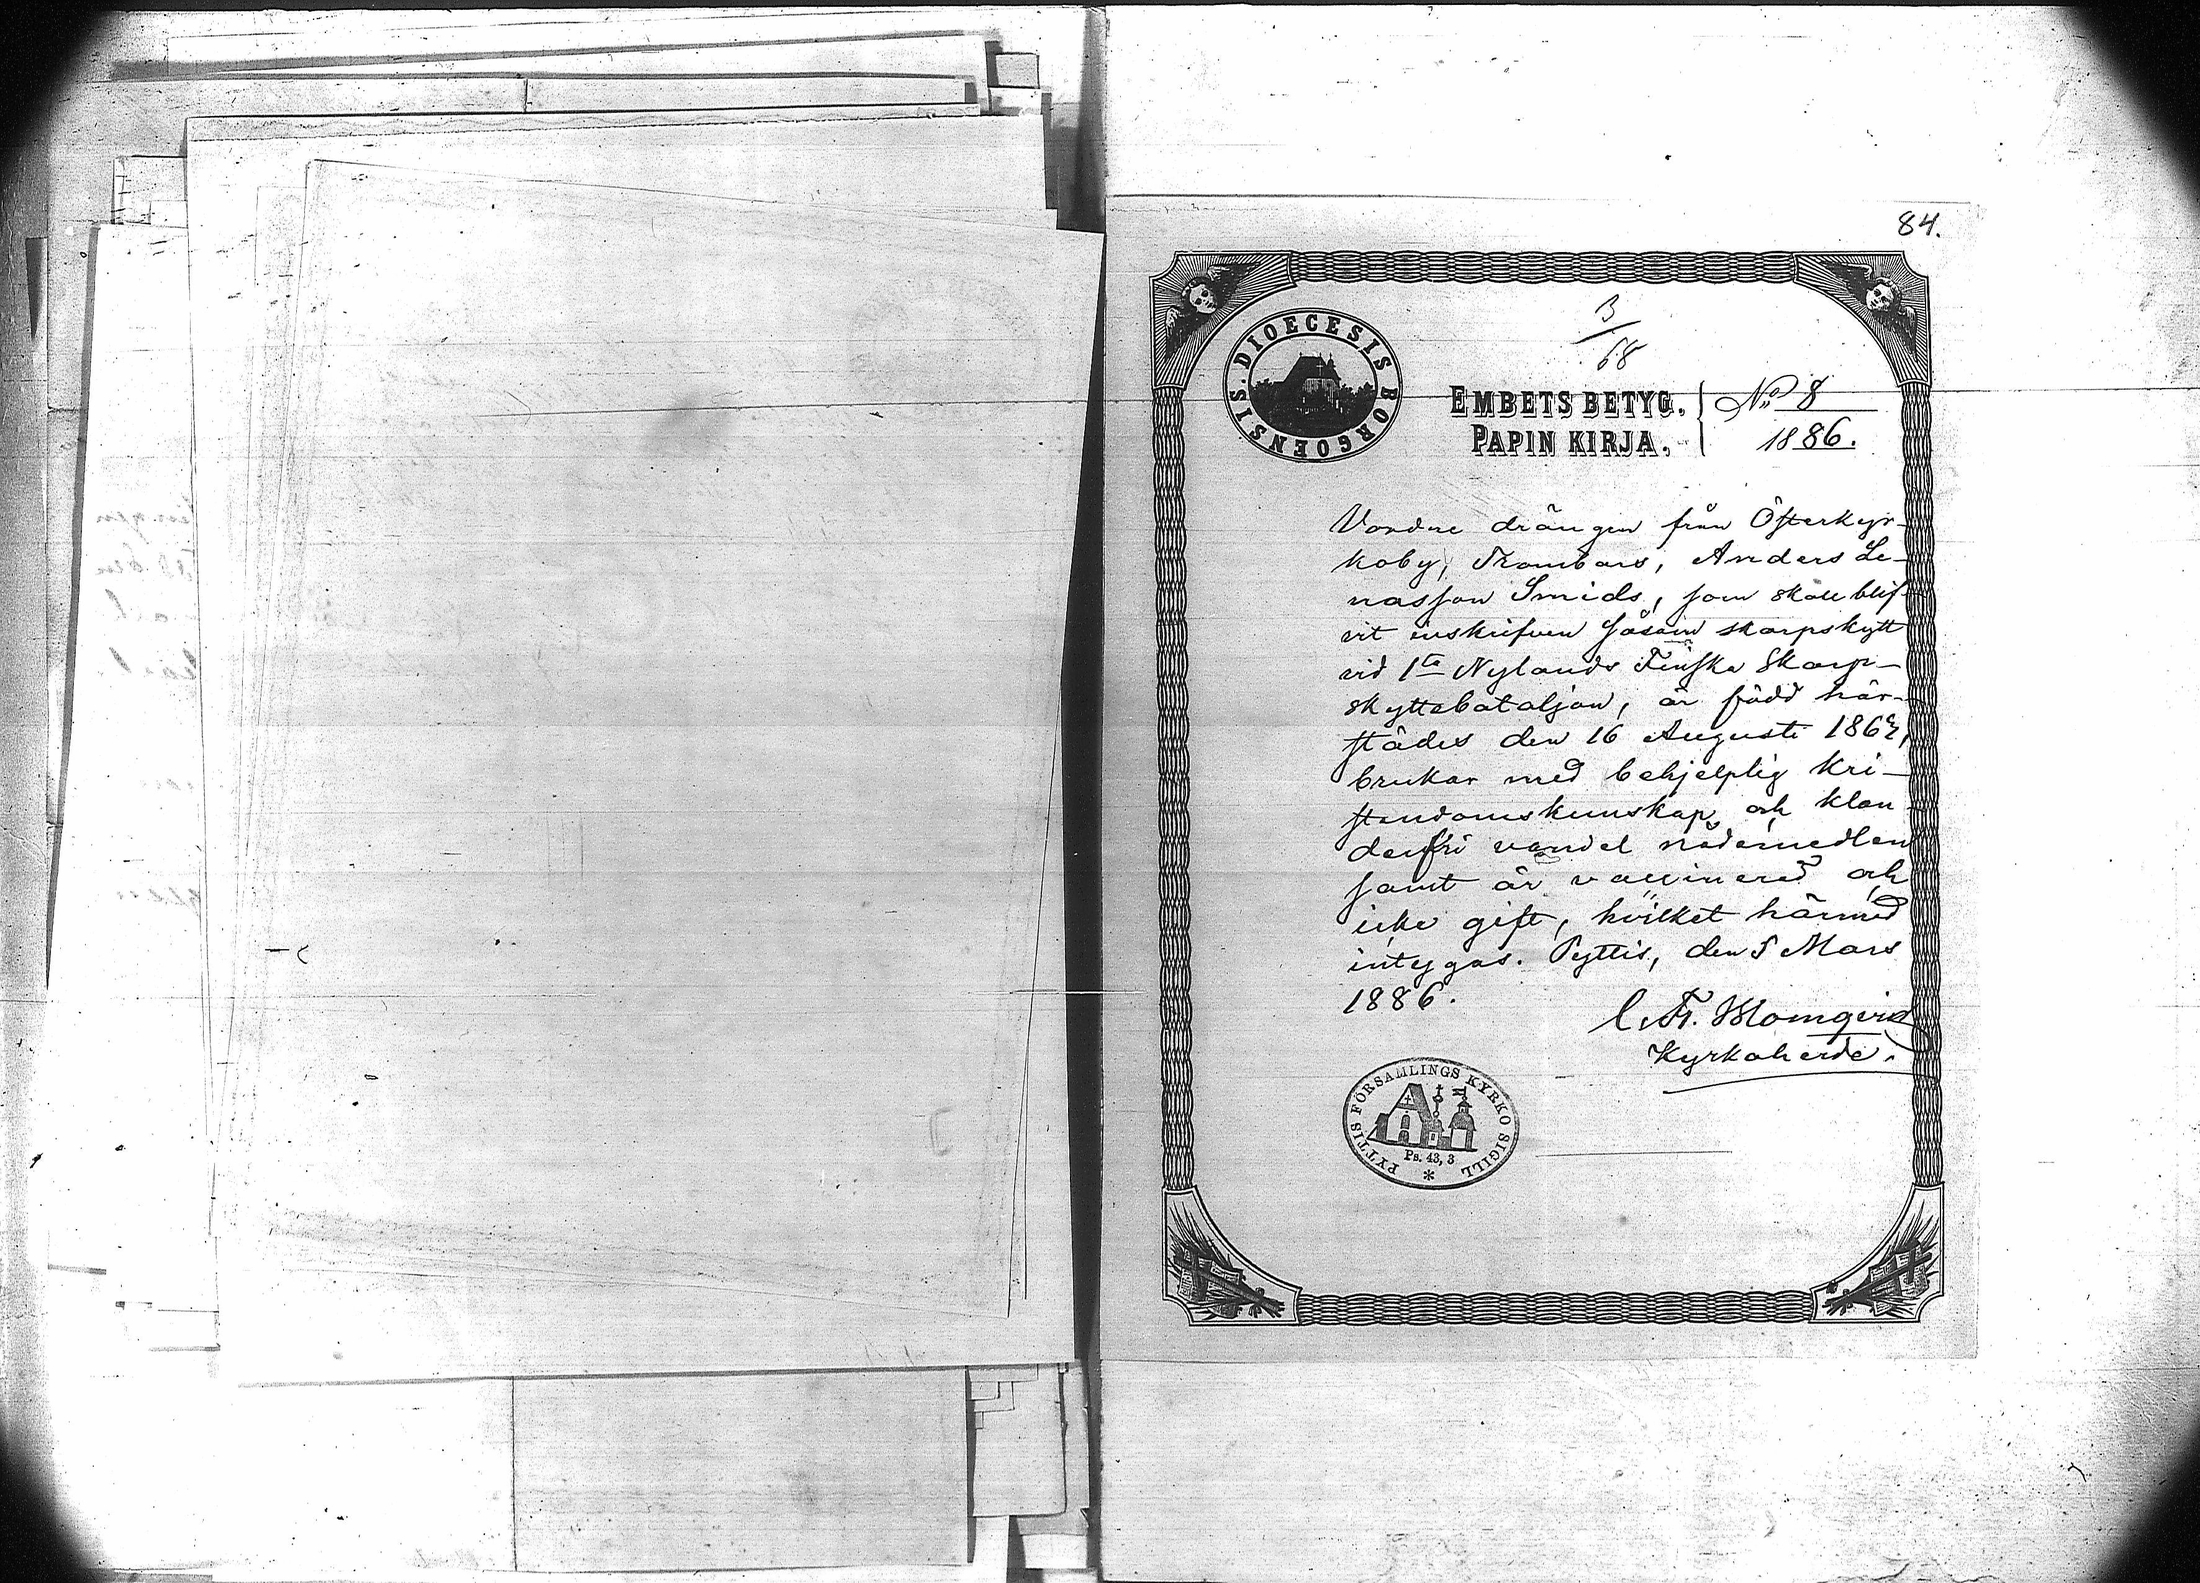 84.
3
68
DIOECESIS BORGOENSIS.
EMBETS BETYG.
PAPIN KIRJA.
No 8
1886.
Vordne drängen från Österkyr-
koby, Trombars, Anders Le-
nasson Smids, som skall blif-
vit inskrifven såsom skarpskytt
vid 1ta Nylands Finska Skarp-
skyttebataljon, är född här-
städes den 16 Augusti
brukar med behjelplig kri-
stendomskunskap och klan
derfri vandel nådemedlen
samt är vaccinerad och
icke gift, hvilket härmed
intygas. Pyttis, den 5 Mars
1886.
Kyrkoherde.
PYTTIS FÖRSAMLINGS KYRKO SIGILL
Ps. 43, 3